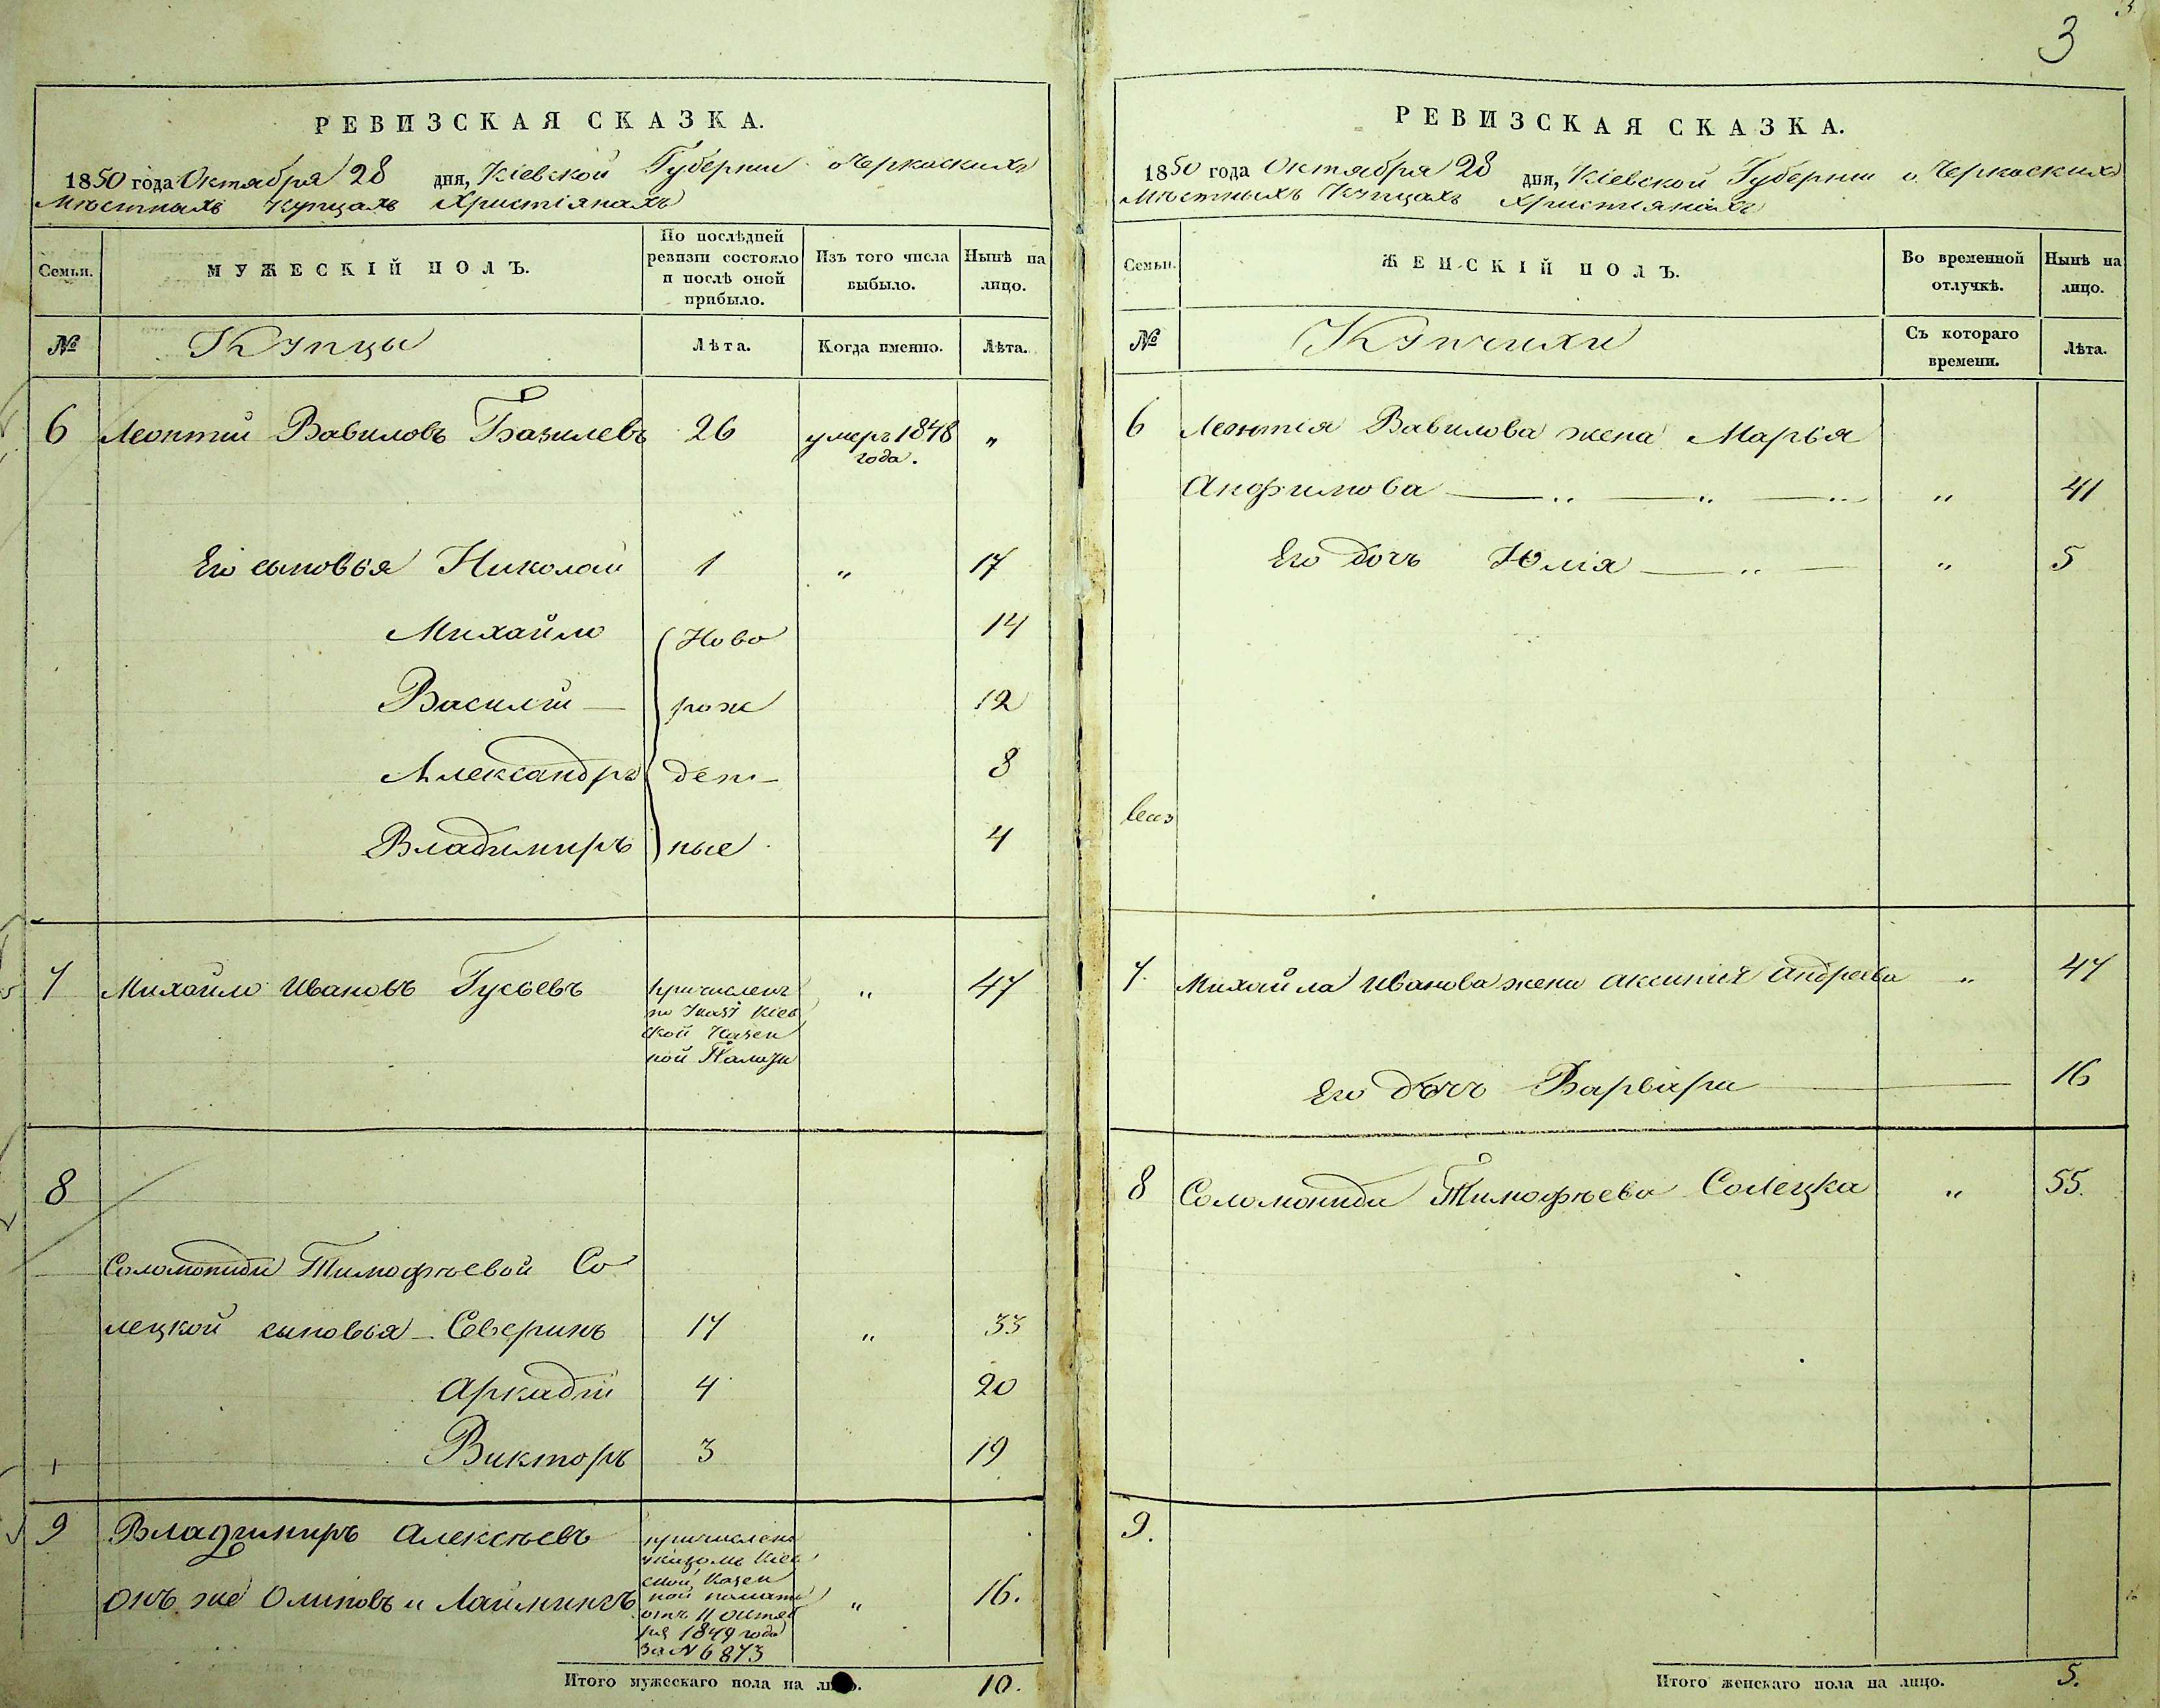 3
РЕВИЗСКАЯ СКАЗКА.
1850 года Октября 28 дня, Кіевской Губерніи о Черкаскихъ
Мѣстныхъ Купцахъ Христіянахъ
Семьи.
МУЖЕСКІЙ ПОЛЪ.
По послѣдней
ревизіи состояло
и послѣ оной
прибыло.
Изъ того числа
выбыло.
Нынѣ на
лицо.
№
Купцы
Лѣта.
Когда именно.
Лѣта.
6 Леонтій Вавиловъ Базилевъ 26 умеръ 1848 „
года.
Его сыновья Николай 1 „ 17
Михайло Ново 14
Василій — рож 12
Александръ ден— 8
Владимиръ ные 4
7 Михайло Ивановъ Гусьевъ причисленъ „ 47
по Указу Кіев
ской Казен
ной Палаты
8
Соломониди Тимофѣевой Со
лецкой сыновья Северинъ 17 „ 33
Аркадій 4 20
Викторъ 3 19
9 Владимиръ Алексѣевъ причисленъ
указомъ Кіев
ской Казен
онъ же Олиповъ и Лаймингъ ной палаты „ 16.
отъ 11 октяб
ря 1849 года
за № 6873
Итого мужескаго пола на лицо. 10.
РЕВИЗСКАЯ СКАЗКА.
1850 года Октября 28 дня, Кіевской Губерніи о Черкаскихъ
Мѣстныхъ Купцахъ Христіянахъ
Семьи.
ЖЕНСКІЙ ПОЛЪ.
Во временной
отлучкѣ.
Нынѣ на
лицо.
№
Купчихи
Съ котораго
времени.
Лѣта.
6 Леонтія Вавилова жена Марья
Анфимова — „ — „ — „ „ 41
Его дочь Юлія — „ — „ 5
7. Михайла Иванова жена Аксинія Андреева „ 47
Его дочь Варвара — 16
8 Соломонида Тимофѣева Солецка „ 55.
9.
Итого женскаго пола на лицо. 5.